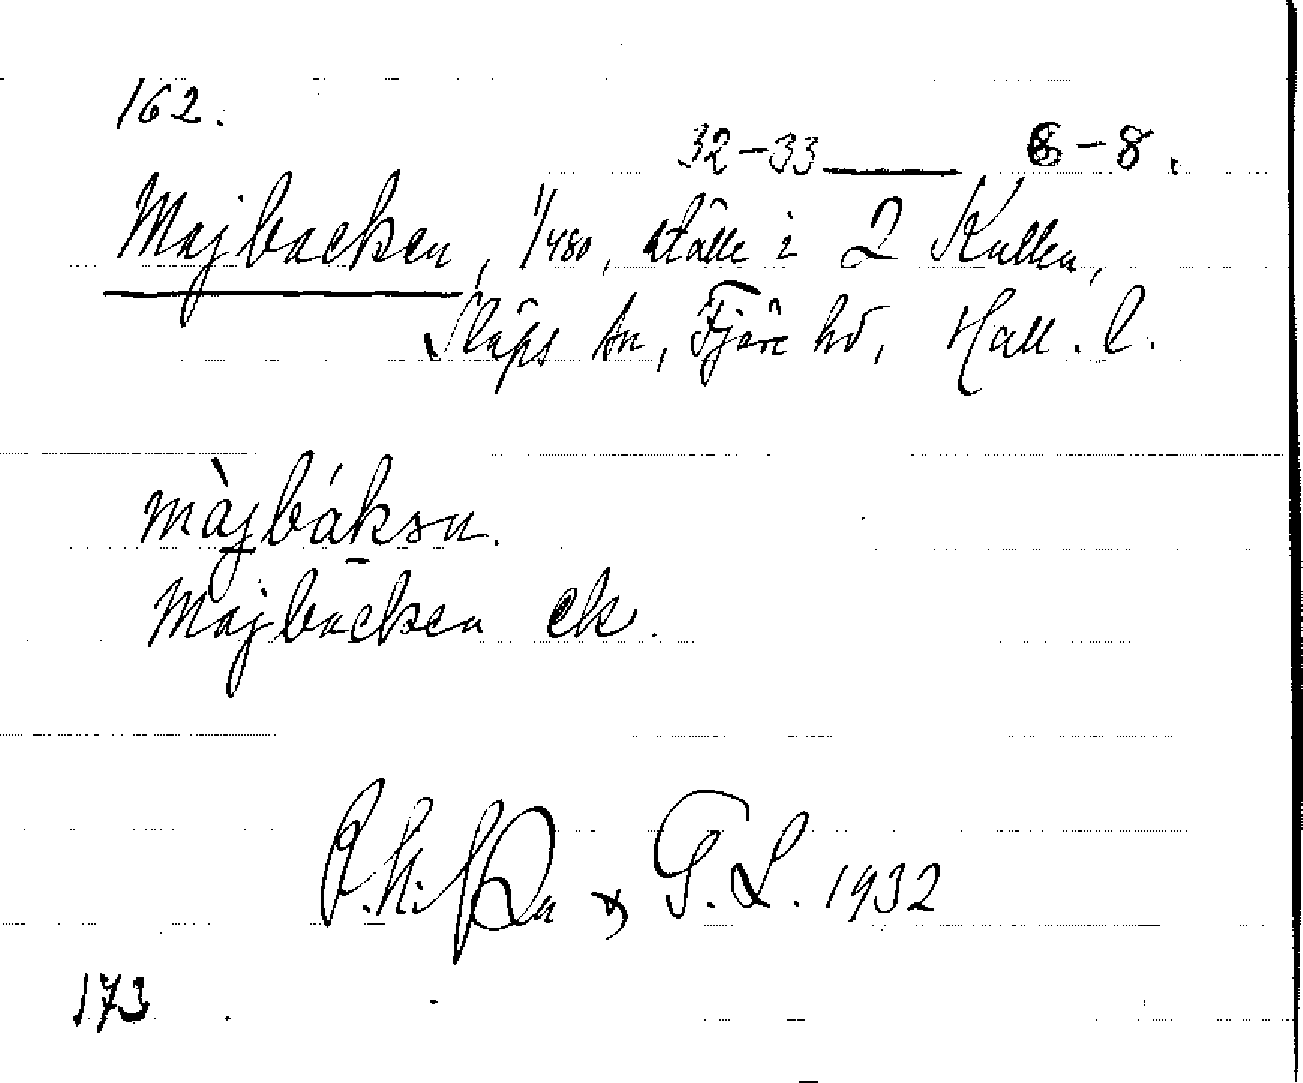 162.
32-33 — 6-8.
Majbacken, 1/480, ställe i 2 Kullen,
Släps sn, Fjäre hd, Hall. l.
màjbáksn.
Majbacken ek.
G. L. 1932
173